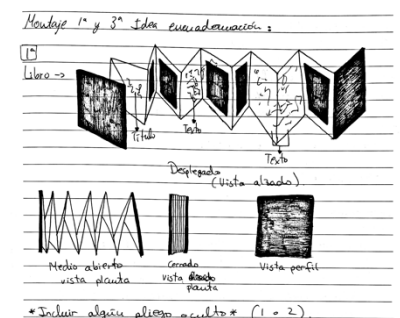 Montaje 1ª y 3ª Idea encuadernación:
1ª
Libro →
Título
Texto
Texto
Desplegado
(Vista alzado)
Medio abierto
vista planta
Cerrado
vista planta
Vista perfil
*Incluir algún pliego oculto* (1 o 2).